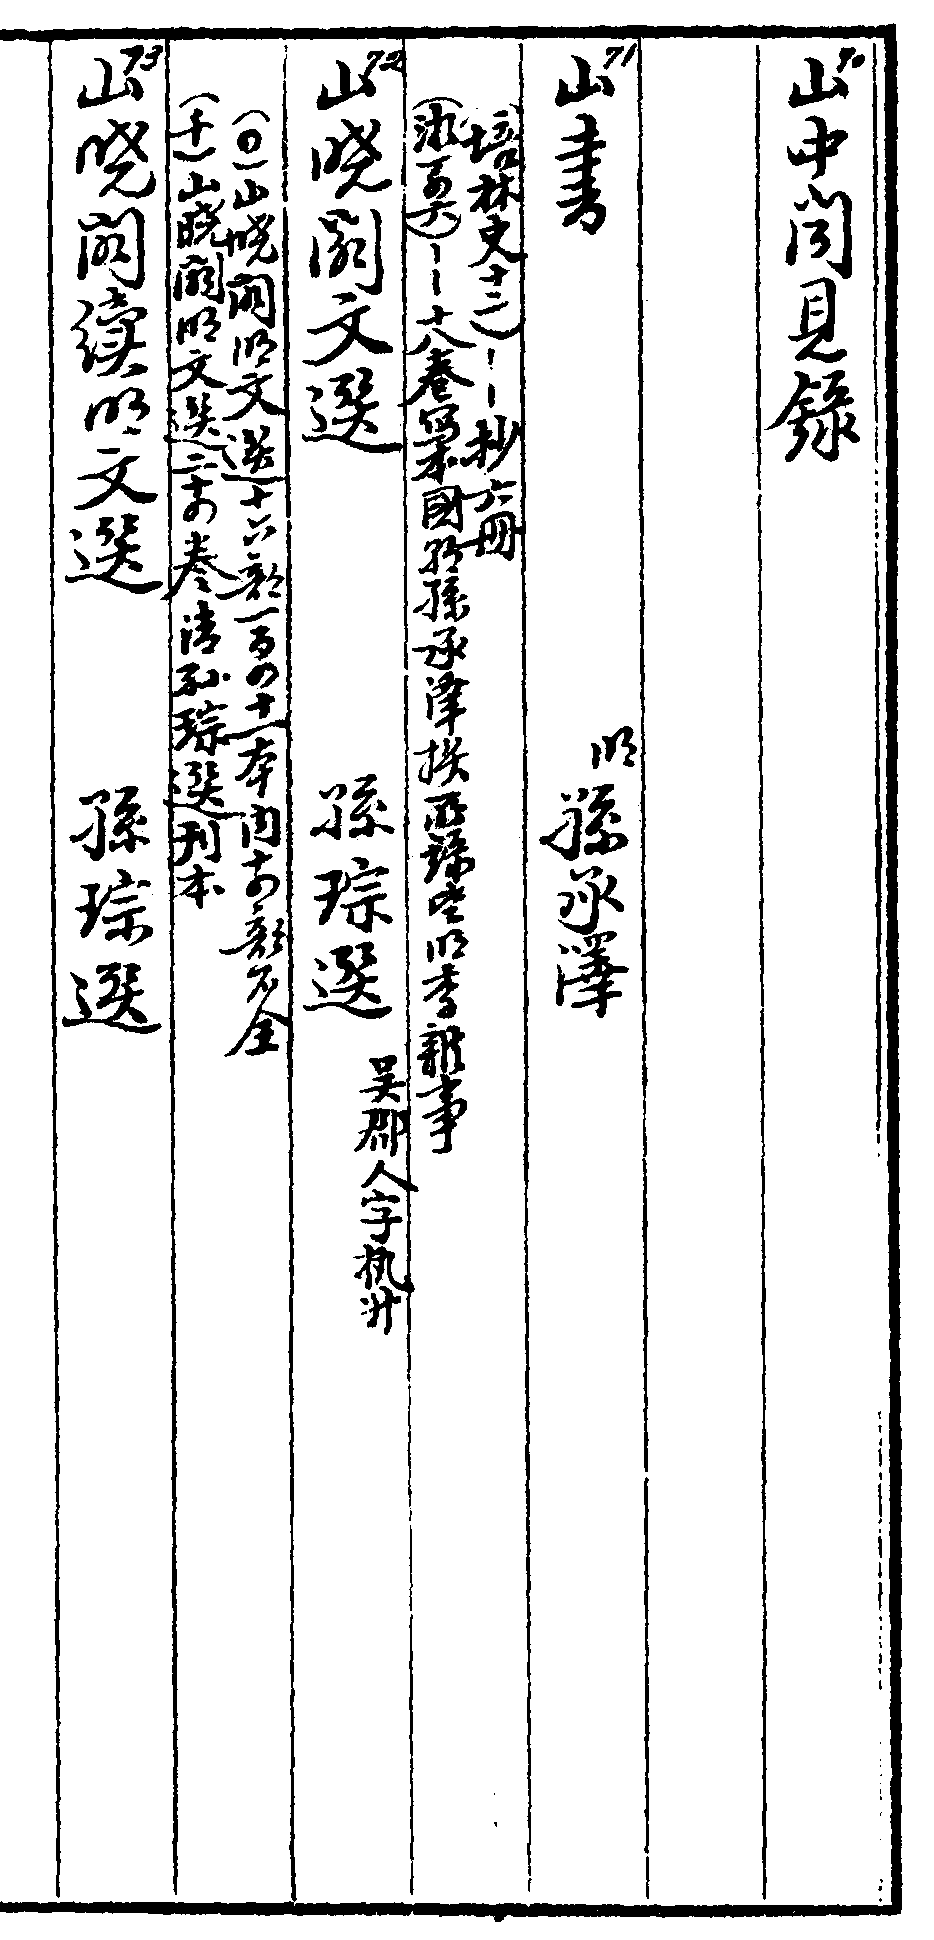 70 山中聞見錄
71 山書 明 孫承澤
培林史十二)——抄六冊
(浙 六)——十八卷 寫本 國朝孫承澤撰 所錄皆明季雜事
72 山曉閣文選 孫琮選 吳郡人字執升
(0)山曉閣明文選十六部一百四十一本內十四部不全
(千)山曉閣明文選二十四卷 清孫琮選刊本
73 山曉閣續明文選 孫琮選